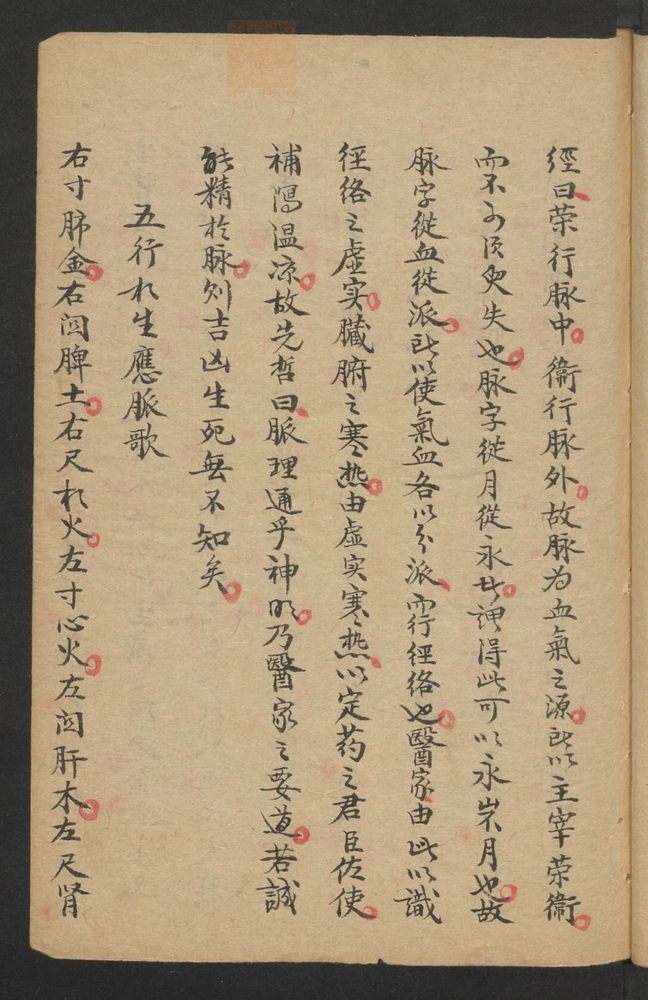 經曰荣行脉中衛行脉外故脉为血氣之源所以主宰荣衛
而不可须臾失也脉字從月從永此谓得此可以永岁月也故
脉字從血從派所以使氣血各以分派而行経絡也醫家由此以識
経絡之虚实臓腑之寒热由虚实寒热以定药之君臣佐使
補瀉温凉故先哲曰脈理通乎神明乃醫家之要道若誠
能精於脉则吉凶生死無不知矣
五行相生應脈歌
右寸肺金右関脾土右尺相火左寸心火左関肝木左尺肾